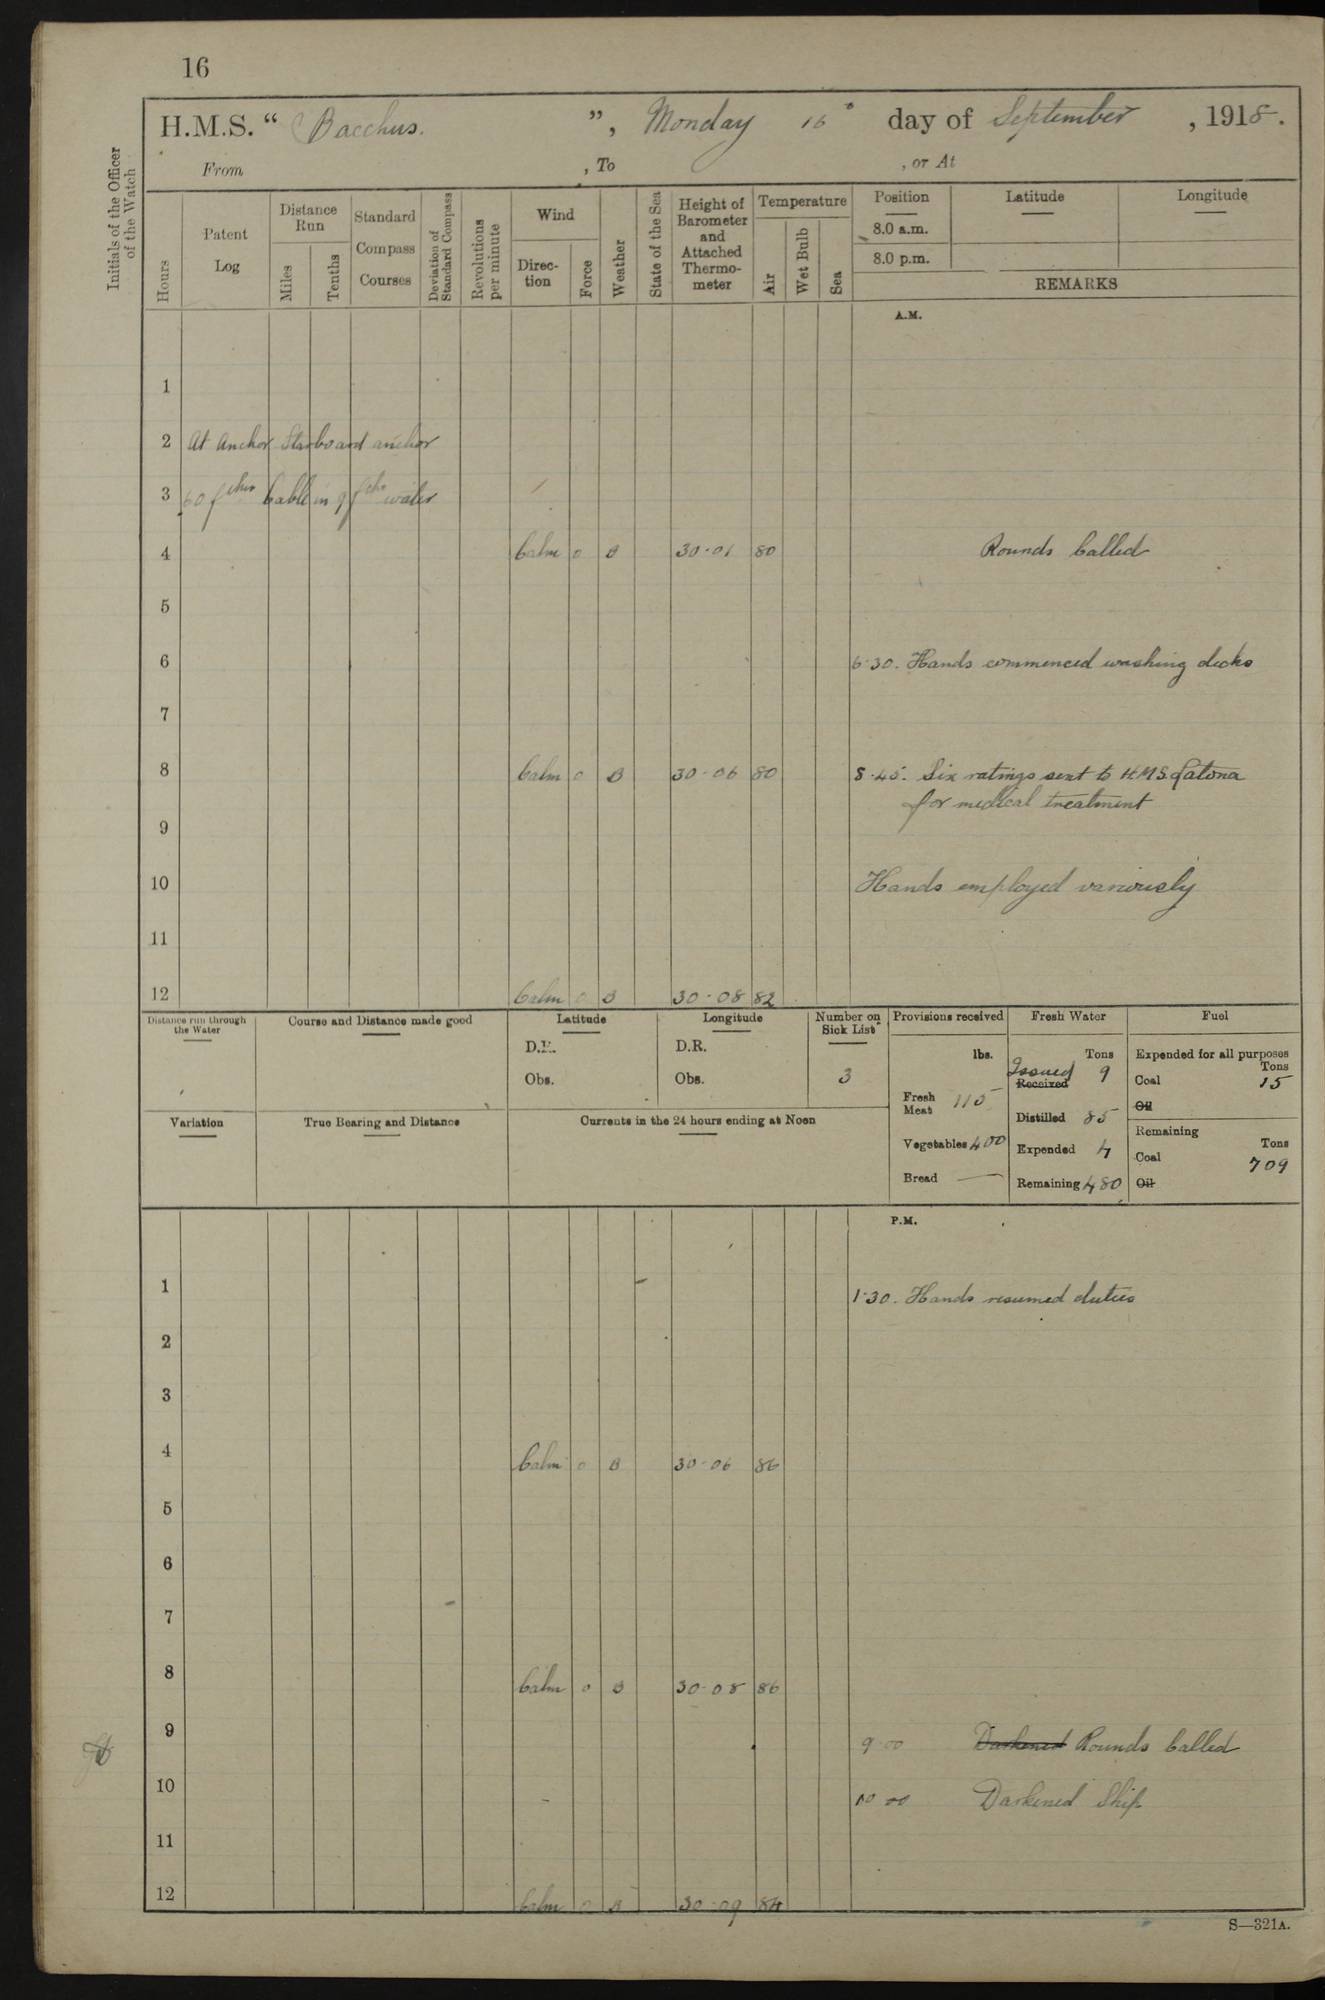 16
H.M.S. “ Bacchus. ”, Monday 16 day of September , 1918.
From , To , or At
Initials of the Officer of the Watch
Hours
Patent Log
Distance Run
Miles
Tenths
Standard Compass Courses
Deviation of Standard Compass
Revolutions per minute
Wind
Direction
Force
Weather
State of the Sea
Height of Barometer and Attached Thermometer
Temperature
Air
Wet Bulb
Sea
Position
8.0 a.m.
8.0 p.m.
Latitude
Longitude
REMARKS
A.M.
1
2 At Anchor Starboard anchor
3 60 fthms Cable in 9 fths water
4 Calm 0 B 30·01 80 Rounds Called
5
6 6·30. Hands commenced washing decks
7
8 Calm 0 B 30·06 80 8·45. Six ratings sent to H M S Latona
for medical treatment
9
10 Hands employed variously
11
12 Calm 0 B 30·08 82
Distance run through the Water
Course and Distance made good
Latitude
D.R.
Obs.
Longitude
D.R.
Obs.
Number on Sick List
3
Provisions received
lbs.
Fresh Meat 115
Vegetables 400
Bread —
Fresh Water
Tons
Issued 9
Received
Distilled 85
Expended 4
Remaining 480
Fuel
Expended for all purposes
Tons
Coal 15
Oil
Remaining
Tons
Coal 709
Oil
Variation
True Bearing and Distance
Currents in the 24 hours ending at Noon
P.M.
1 1·30. Hands resumed duties
2
3
4 Calm 0 B 30·06 86
5
6
7
8 Calm 0 B 30·08 86
9 9·00 Darkened Rounds Called
10 10·00 Darkened Ship
11
12 Calm 0 B 30·09 84
S—321A.